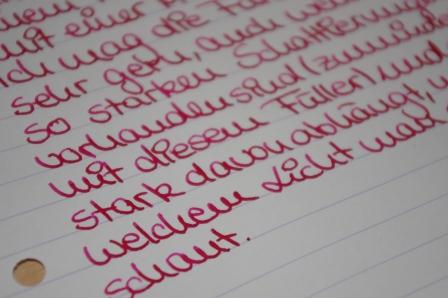 mit einer
ich mag die Fa
sehr gern, auch we
so starken Schattierung
vorhanden sind (zumind
mit diesem Füller) und
stark davon abhängt,
welchem Licht man
schaut.